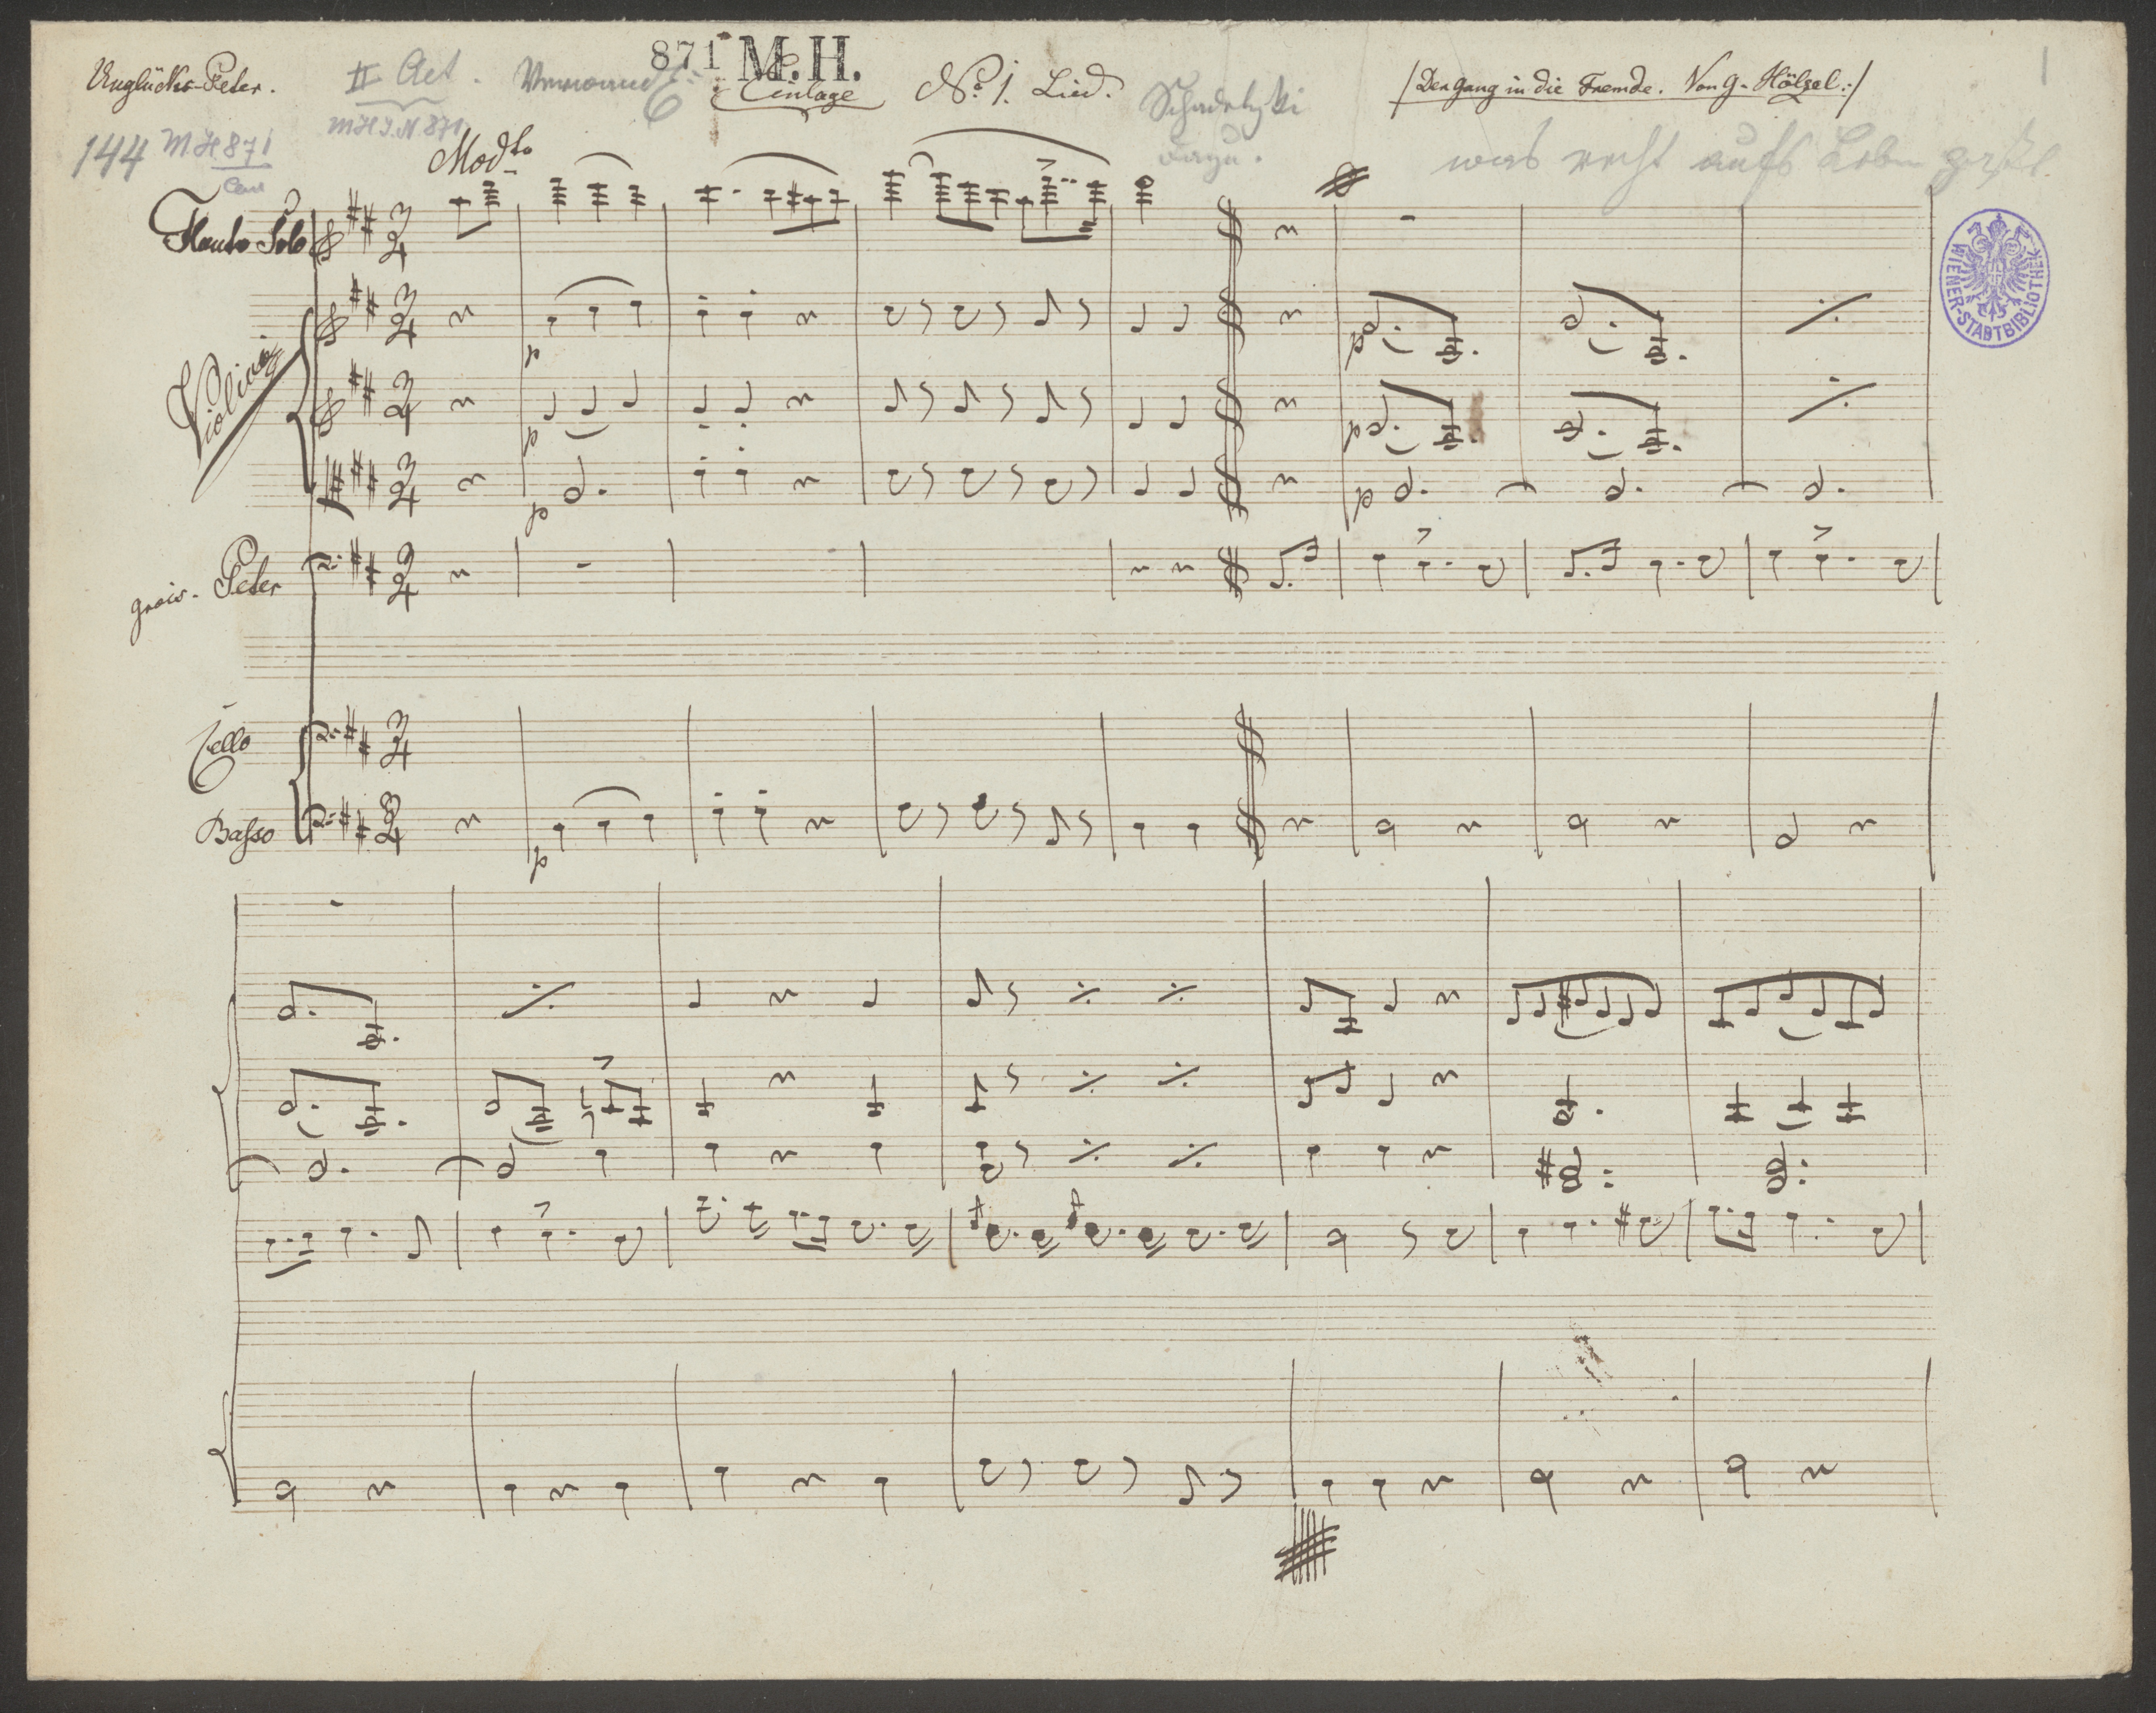 871 M.H.
Unglücks-Peter.
II Act.
Einlage
No. 1. Lied.
/Der Gang in die Fremde. Von G. Hölzel:/
1
M H I. N 871
144
M H 871
was recht aufs Leben
Modto
Flauto Solo
Violini
p
p
p
p
p
p
grois. Peter
Cello
Basso
p
WIENER-STADTBIBLIOTHEK